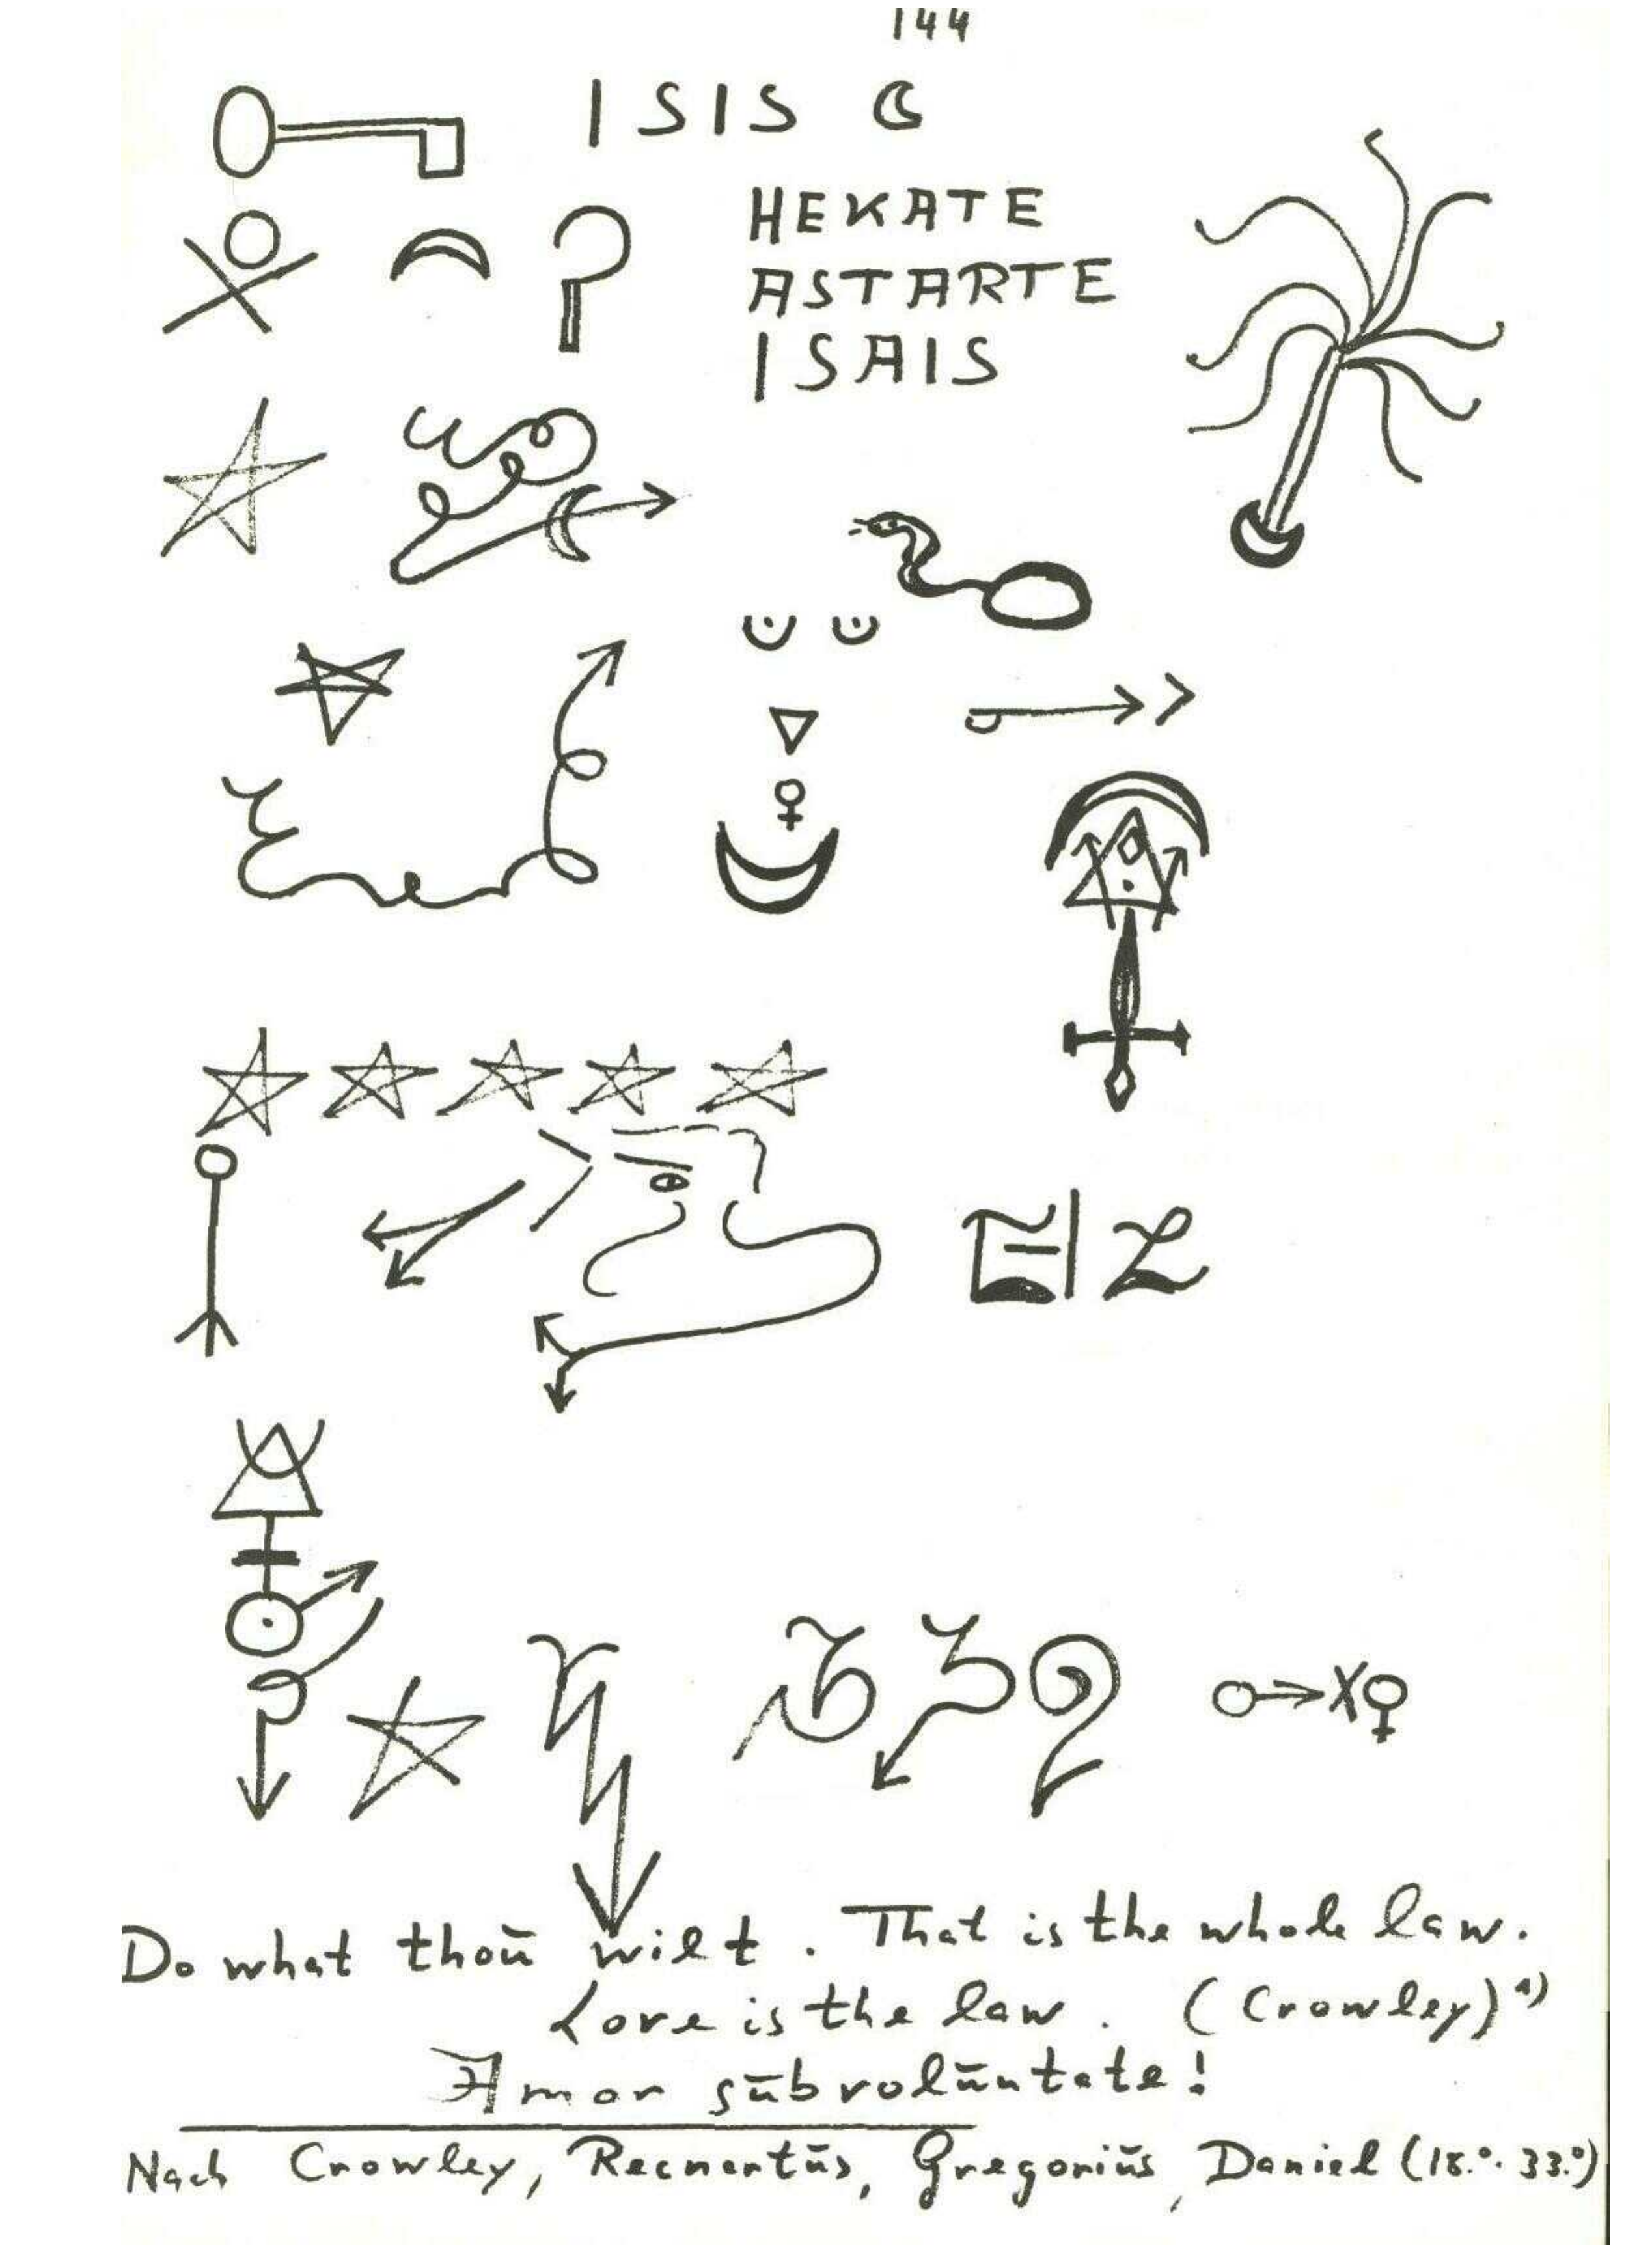 144
ISIS
HEKATE
ASTARTE
ISAIS
Do what thoŭ wilt. That is the whole law.
Love is the law. (Crowley) 1)
Amor sŭb volŭntate!
Nach Crowley, Recnartŭs, Gregoriŭs, Daniel (18.°. 33.°)